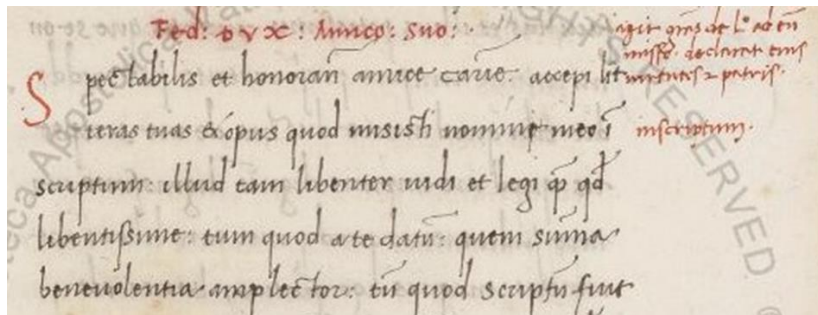 Fed: DVX: Amico: Suo:
Spectabilis et honoran̄ amice carīe: accepi lit
teras tuas & opus quod misisti nomine meo ī
scriptum: illud tam libenter uidi et legi q̄ qd̄
libentissime: tum quod a te datū: quem sūma
beneuolentia amplector: tū quod scriptū fuit
agit gr̄as de lº ad eū
misso. declarat eius
uirtutis & patris.
inscriptum.